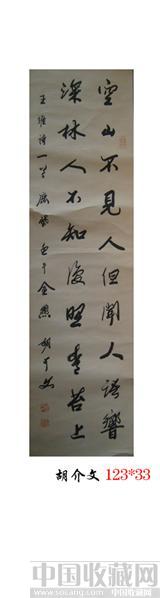 空山不見人但聞人語響
深林人不知復照青苔上
王維詩一首 胡介文
胡介文 123*33
中国收藏网
www.socang.com
中国收藏网